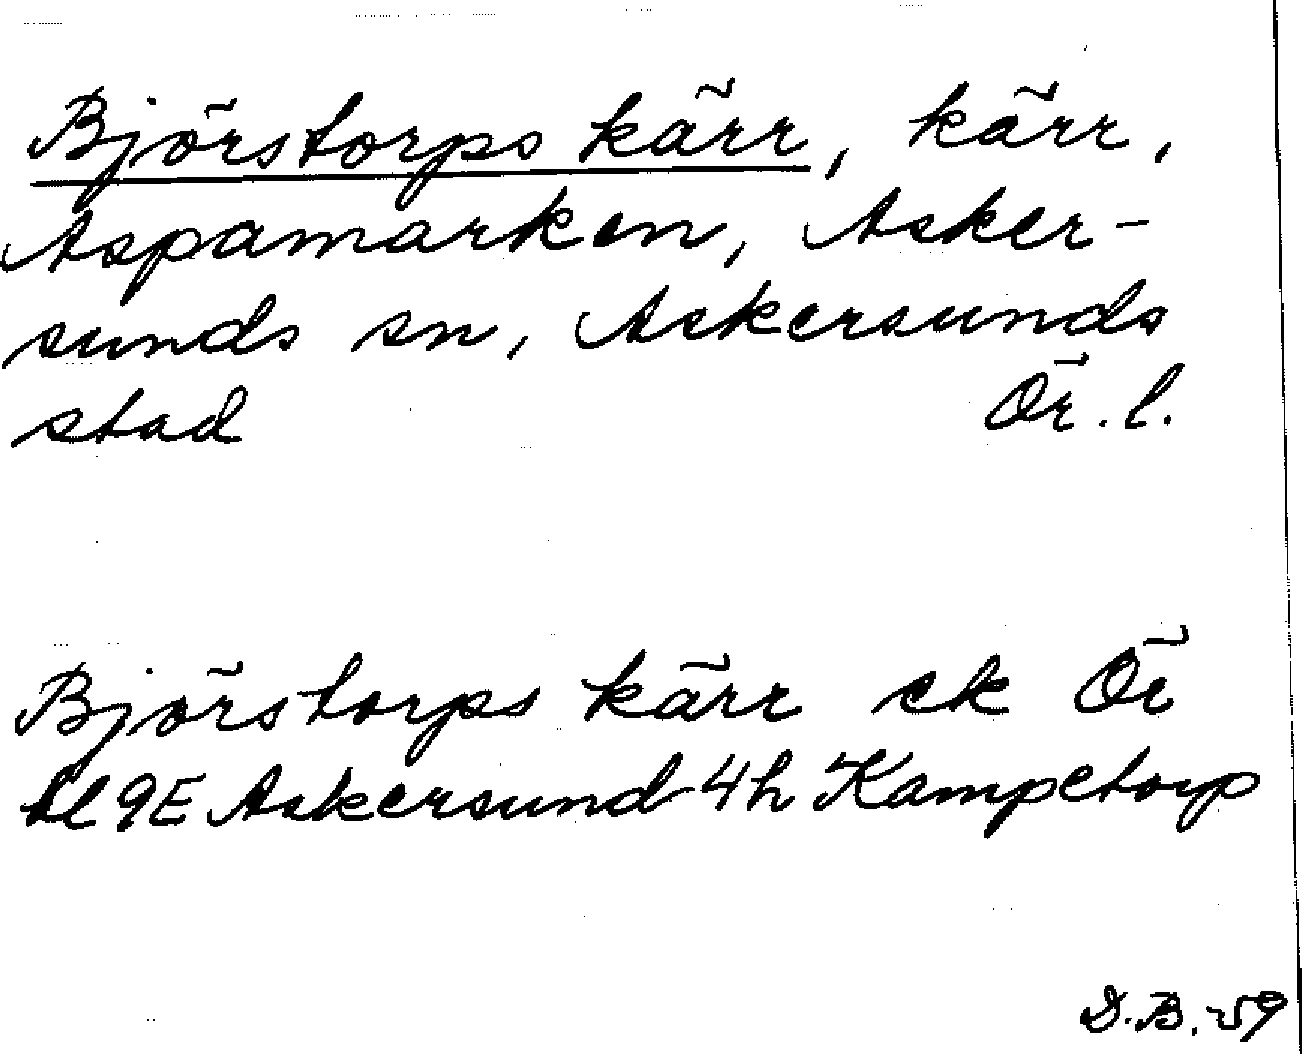 Björstorps kärr, kärr,
Aspamarken, Asker-
sunds sn, Askersunds
stad Ör. l.
Björstorps kärr ek Ör
bl 9E Askersund 4h Kampetorp
D.B. 59